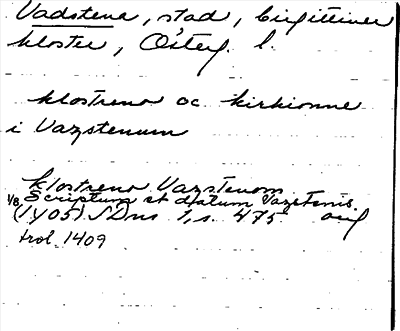 Vadstena, stad, birgittiner
kloster, Österg. l.
klostreno oc kirkionne
i Vazstenum
klostreno Vazstenom
Scriptum et datum Vazstenis
1/8 (1405) SDns 1, s. 475 orig
trol. 1409